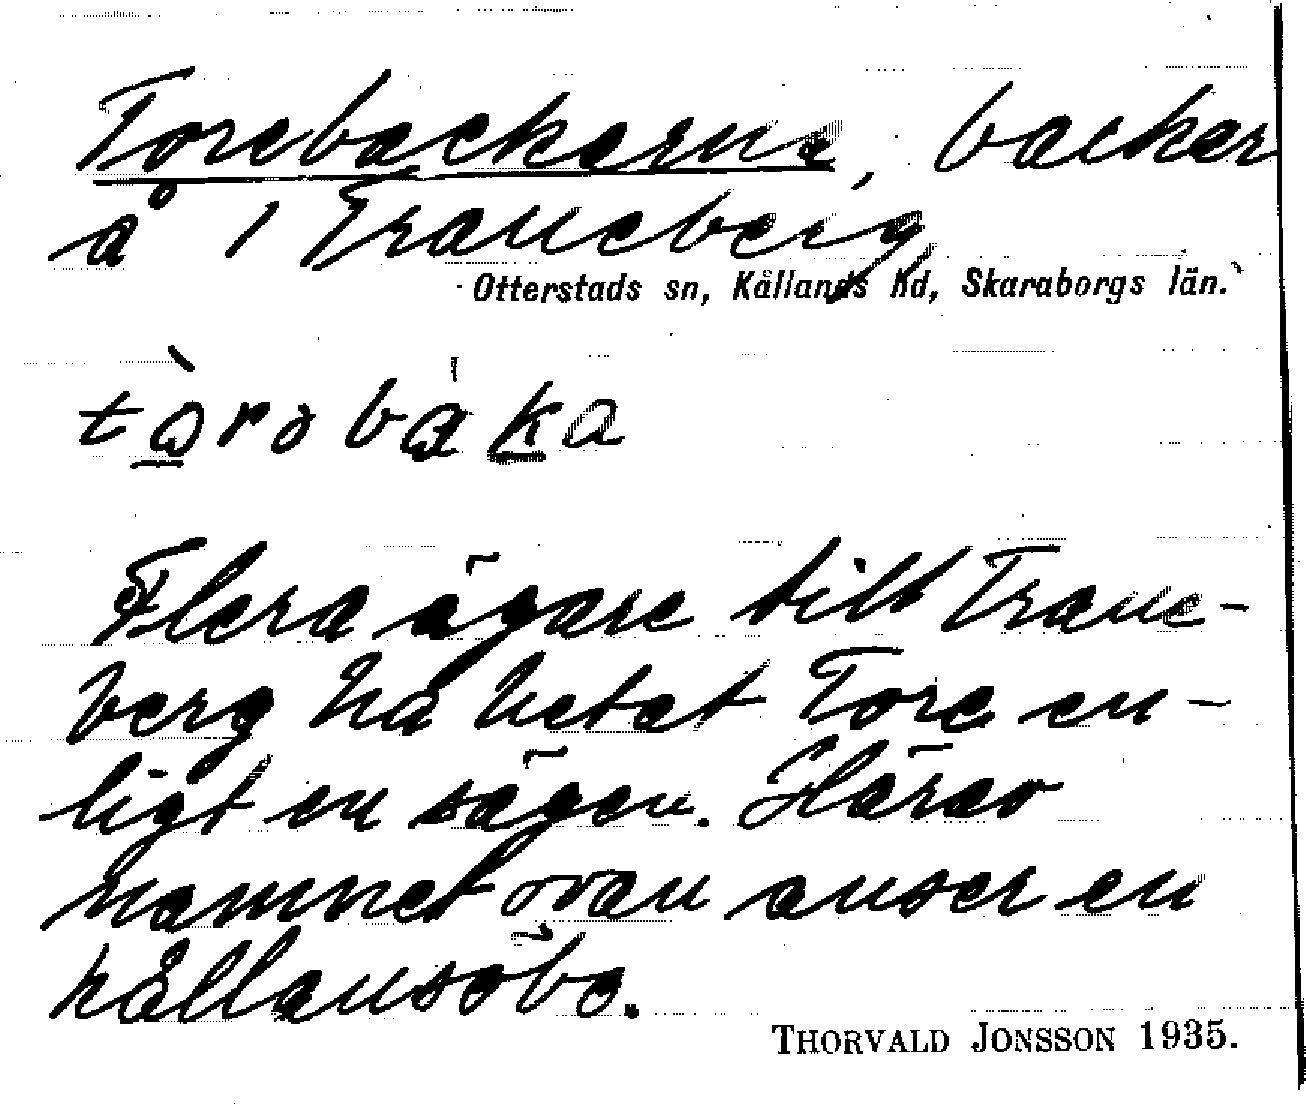 Torebackarne, backar
å 1 Traneberg
Otterstads sn, Kållands hd, Skaraborgs län.
Flera ägare till Trane-
berg ha hetat Tore en-
ligt en sägen. Härav
namnet ovan anser en
kållandsöbo.
THORVALD JONSSON 1935.